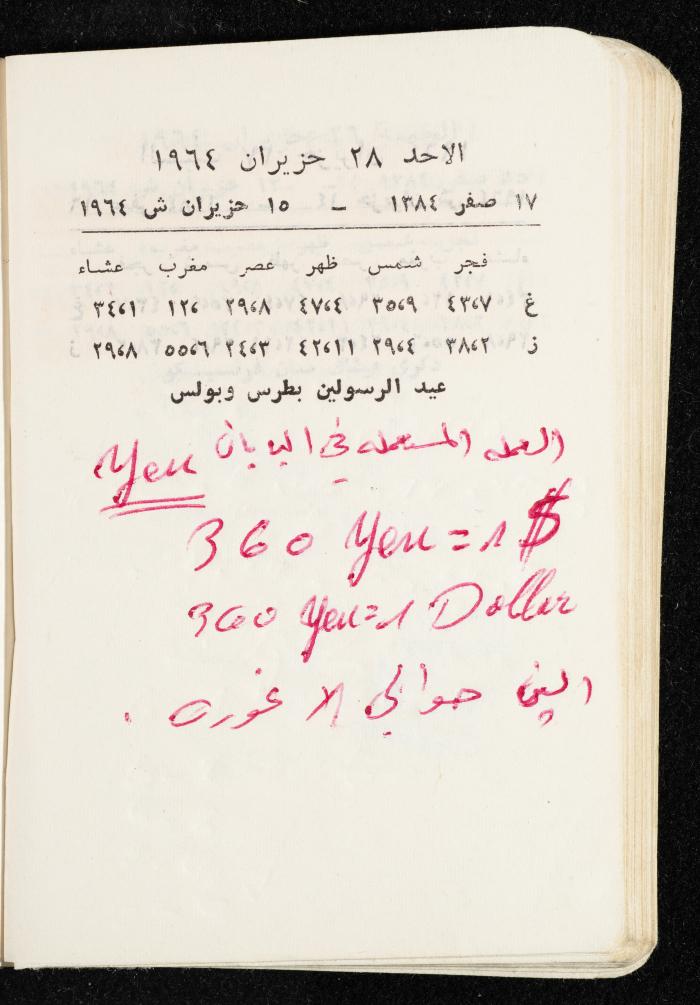 الاحد ٢٨ حزيران ١٩٦٤
١٧ صفر ١٣٨٤ – ١٥ حزيران ش ١٩٦٤
فجر شمس ظهر عصر مغرب عشاء
غ ٤٣،٧ ٣٥،٩ ٤٧،٤ ٢٩،٨ ١٢، ٣٤،١
ز ٣٨،٢ ٢٩،٤ ٤٢،١١ ٢٤،٣ ٥٥،٦ ٢٩،٨
عيد الرسولين بطرس وبولس
العمله المستعمله في اليابان Yen
360 Yen = 1 $
360 Yen = 1 Dollar
الين حوالي